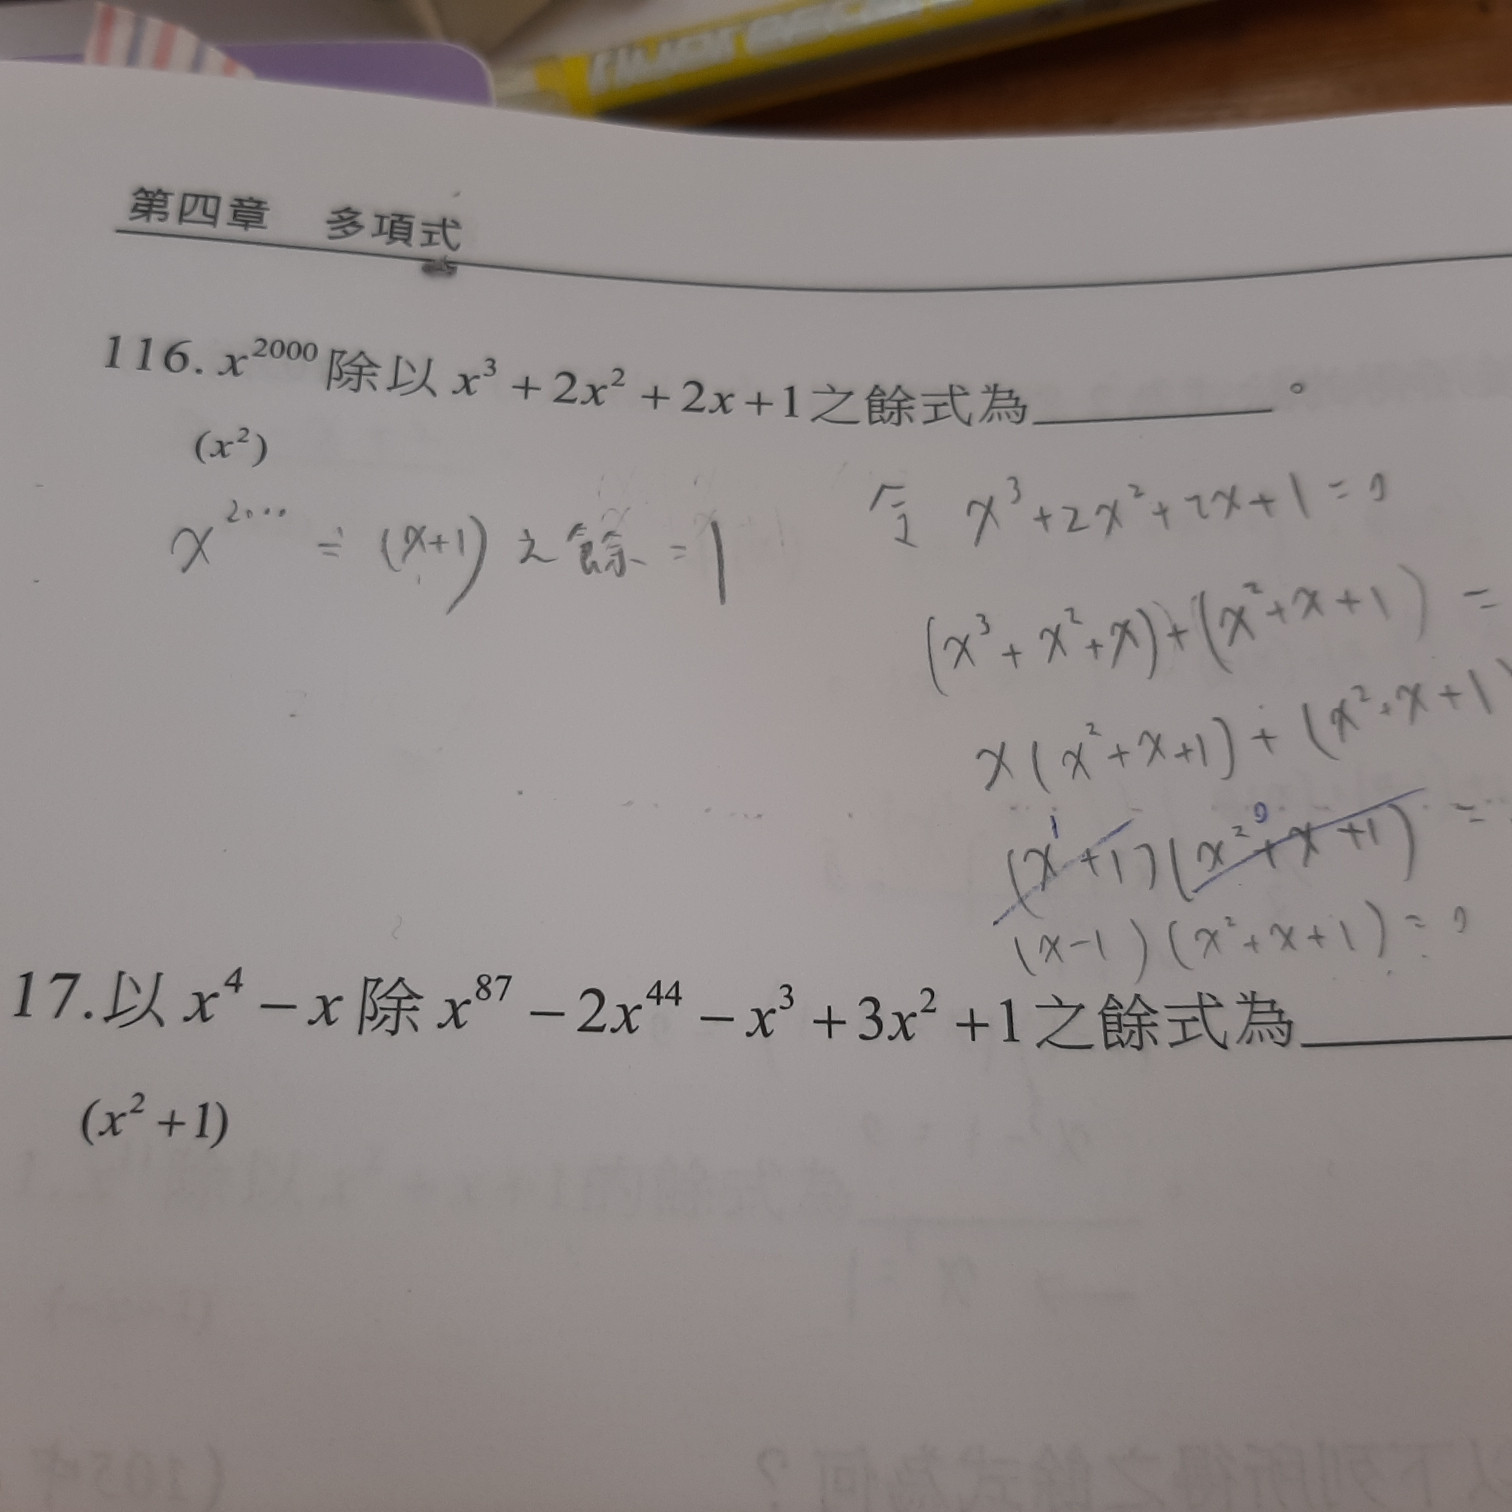 第四章 多項式
116. x²⁰⁰⁰ 除以 x³ + 2x² + 2x + 1 之餘式為________。
(x²)
x²⁰⁰⁰ ÷ (x+1) 之餘 = 1
令 x³+2x²+2x+1=0
(x³+x²+x)+(x²+x+1) =
x(x²+x+1)+(x²+x+1)
(x+1)(x²+x+1) =
(x-1)(x²+x+1)=0
17. 以 x⁴ − x 除 x⁸⁷ − 2x⁴⁴ − x³ + 3x² + 1 之餘式為________
(x² + 1)